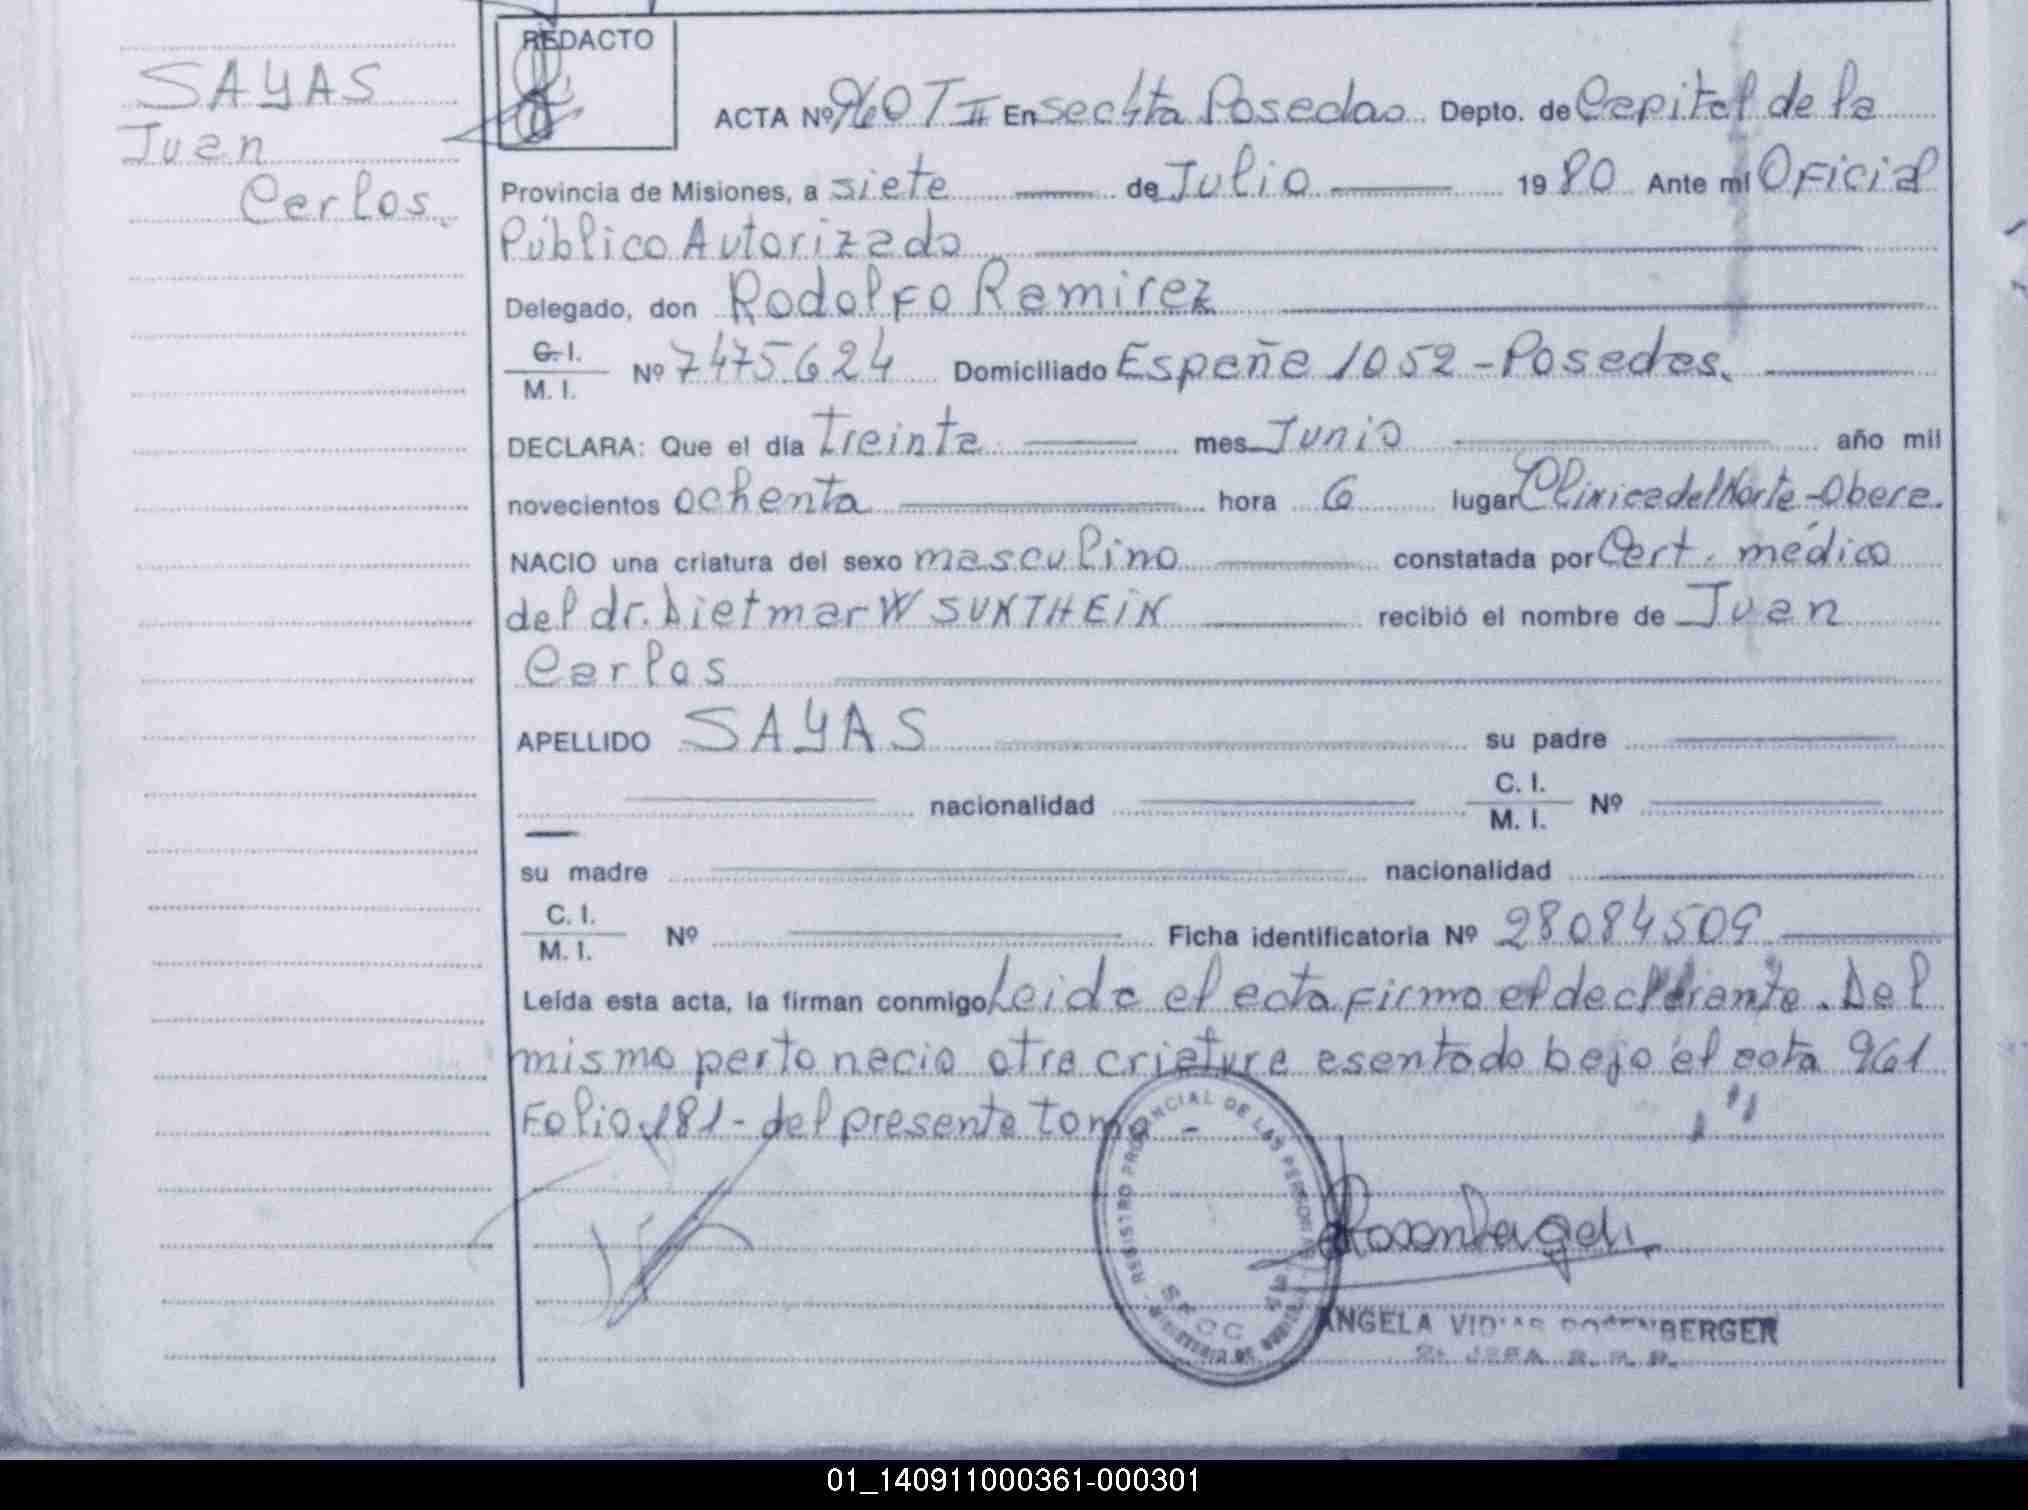 SAYAS
Juan
Carlos.
REDACTO
ACTA Nº 960 T II En sec 4ta Posadas Depto. de Capital de la
Provincia de Misiones, a siete de Julio 1980 Ante mí Oficial
Público Autorizado
Delegado, don Rodolfo Ramirez
C. I.
M. I. Nº 7475624 Domiciliado España 1052 - Posadas.
DECLARA: Que el día treinta mes Junio año mil
novecientos ochenta hora 6 lugar Clinica del Norte - Obera.
NACIO una criatura del sexo masculino constatada por Cert. médico
del dr. Dietmar W SUNTHEIN recibió el nombre de Juan
Carlos
APELLIDO SAYAS su padre
nacionalidad C. I.
M. I. Nº
su madre nacionalidad
C. I.
M. I. Nº Ficha identificatoria Nº 28084509
Leída esta acta, la firman conmigo Leida el acta firma el declarante. Del
mismo parto nacio otra criatura asentado bajo el acta 961
Folio 181 - del presente tomo -
REGISTRO PROVINCIAL DE LAS PERSONAS
ANGELA ROSENBERGER
01_140911000361-000301